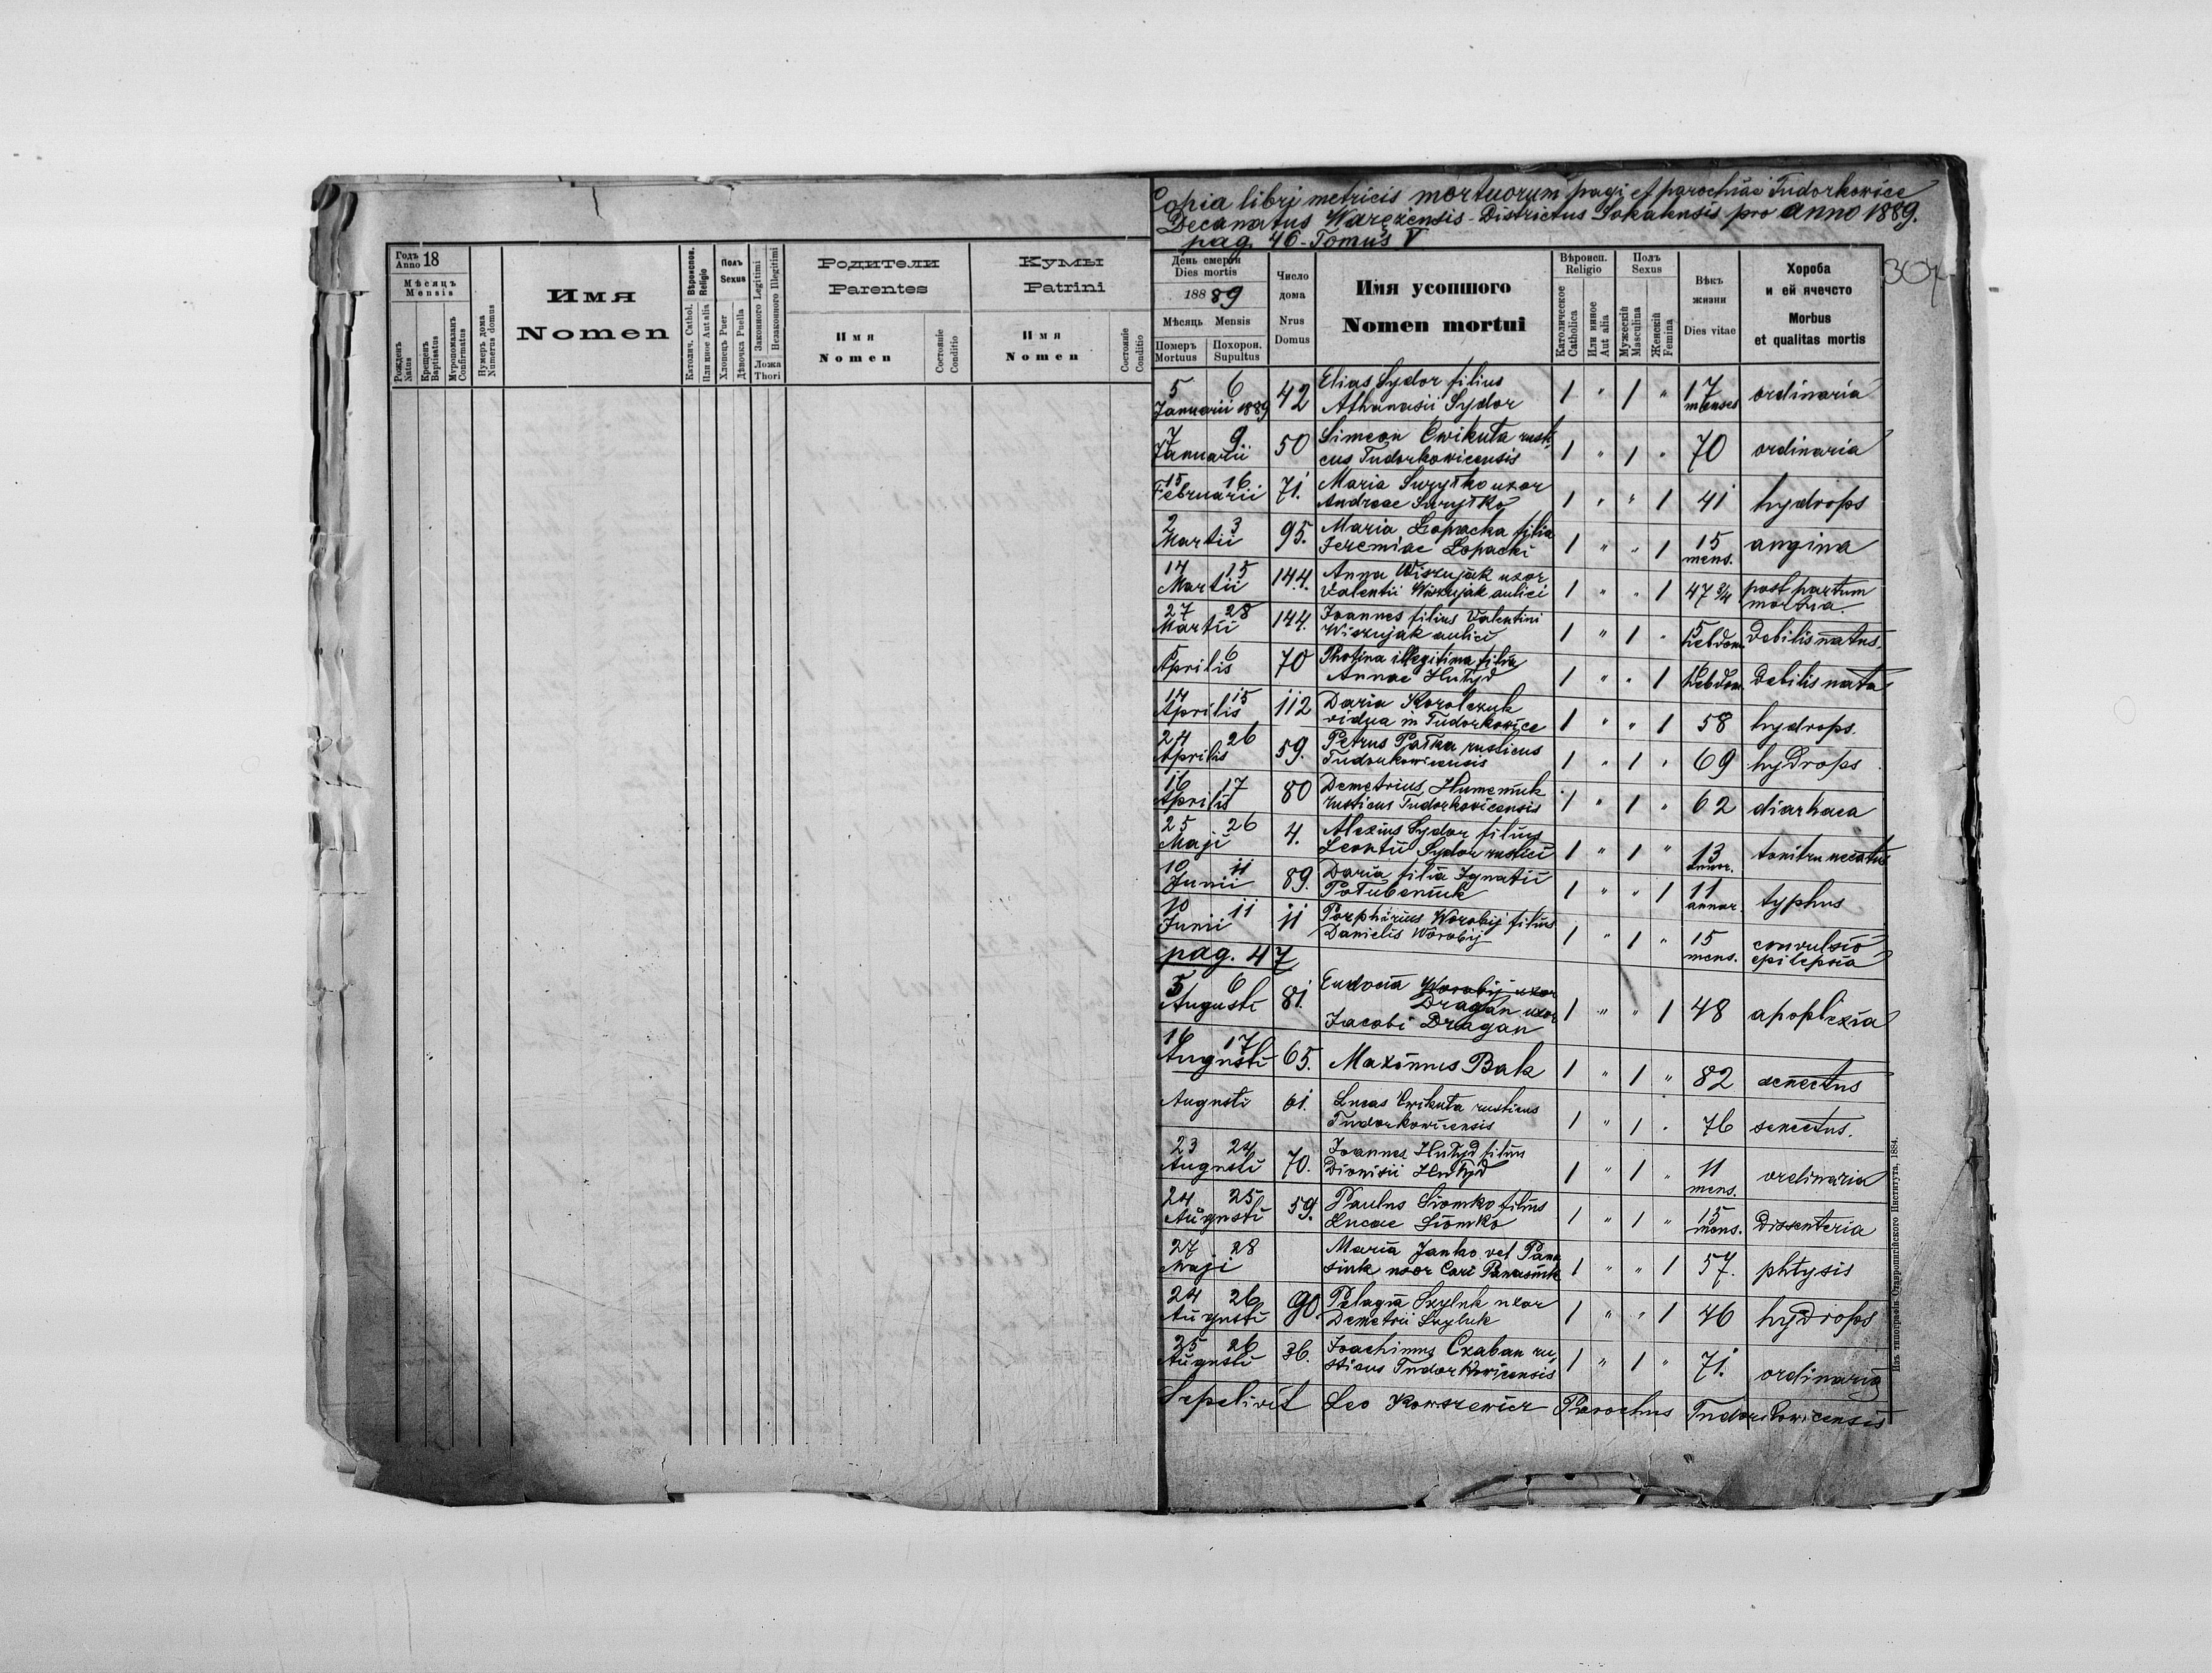 Годъ Anno 18
Мѣсяцъ Mensis
Рожденъ Natus
Крещенъ Baptisatus
Муропомазанъ Confirmatus
Нумеръ дома Numerus domus
Имя
Nomen
Вѣроиспов. Religio
Католич. Cathol.
Или иное Aut alia
Полъ Sexus
Хлопецъ Puer
Дѣвочка Puella
Законного Legitimi
Незаконного Illegitimi
Ложа Thori
Родители
Parentes
Имя
Nomen
Состояніе Conditio
Кумы
Patrini
Имя
Nomen
Состояніе Conditio
Copia libri metricis mortuorum pagi et parochiae Tudorkowice
Decanatus Waręzensis - Districtus Sokalensis pro anno 1889.
pag. 46 - Tomus V
307
День смерти
Dies mortis
188 89
Мѣсяць Mensis
Померъ Mortuus
Похорон. Supultus
Число дома
Nrus Domus
Имя усопшого
Nomen mortui
Вѣроисп. Religio
Католическое Catholica
Или инное Aut alia
Полъ Sexus
Мужескій Masculina
Женскій Femina
Вѣкъ жизни
Dies vitae
Хороба
и ей ячечсто
Morbus
et qualitas mortis
5 6 Januarii 1889 42 Elias Sydor filius Athanasii Sydor 1 " 1 " 17 menses ordinaria
7 9 Januarii 50 Simeon Cwikuta rusticus Tudorkowicensis 1 " 1 " 70 ordinaria
15 16 Februarii 71. Maria Surytko uxor Andreae Surytko 1 " " 1 41 hydrops
2 3 Martii 95. Maria Łopacka filia Jeremiae Łopacki 1 " " 1 15 mens. angina
14 15 Martii 144. Anna Wiszujak uxor Valentii Wiszujak aulici 1 " " 1 47 3/4 post partum mortua.
27 28 Martii 144. Joannes filius Valentini Wiszujak aulici 1 " 1 " 15 hebdom. Debilis natus.
5 6 Aprilis 70 Photina illegitima filia Annae Hułyd 1 " " 1 hebdom. Debilis nata
14 15 Aprilis 112 Daria Korolczuk vidua in Tudorkowice 1 " " 1 58 hydrops.
24 26 Aprilis 59. Petrus Pałka rusticus Tudorkowicensis 1 " 1 " 69 hydrops
16 17 Aprilis 80 Demetrius Humeniuk rusticus Tudorkowicensis 1 " 1 " 62 diarhaea
25 26 Maji 4. Alexius Sydor filius Leontii Sydor rustici 1 " 1 " 13 annor. tonitru necatus
10 11 Junii 89. Daria filia Ignatii Połubeniuk 1 " " 1 11 annor. typhus
10 11 Junii 11 Porphirius Worobij filius Danielis Worobij 1 " 1 " 15 mens. convulsio epilepsia
pag. 47
5 6 Augusti 81. Eudocia Worobij uxor Dragan uxor Jacobi Dragan 1 " " 1 48 apoplexia
16 17 Augusti 65. Maximus Bak 1 " 1 " 82 senectus
Augusti 61. Lucas Cwikuta rusticus Tudorkowicensis 1 " 1 " 76 senectus.
23 24 Augusti 70. Joannes Hułyd filius Dionisii Hułyd 1 " 1 " 11 mens. ordinaria
24 25 Augusti 59. Paulus Siomko filius Lucae Siomko 1 " 1 " 15 mens. Dissenteria
27 28 Maji Maria Janko vel Panasiuk uxor Cari Panasiuk 1 " " 1 57. phtysis
24 26 Augusti 90. Pelagia Szyluk uxor Demetrii Szyluk 1 " " 1 46 hydrops
25 26 Augusti 36. Joachimus Czaban rusticus Tudorkowicensis 1 " 1 " 71. ordinaria
Sepelivit Leo Kowszewicz Parochus Tudorkowicensis
Изъ типографіи Ставропигійского Института, 1884.